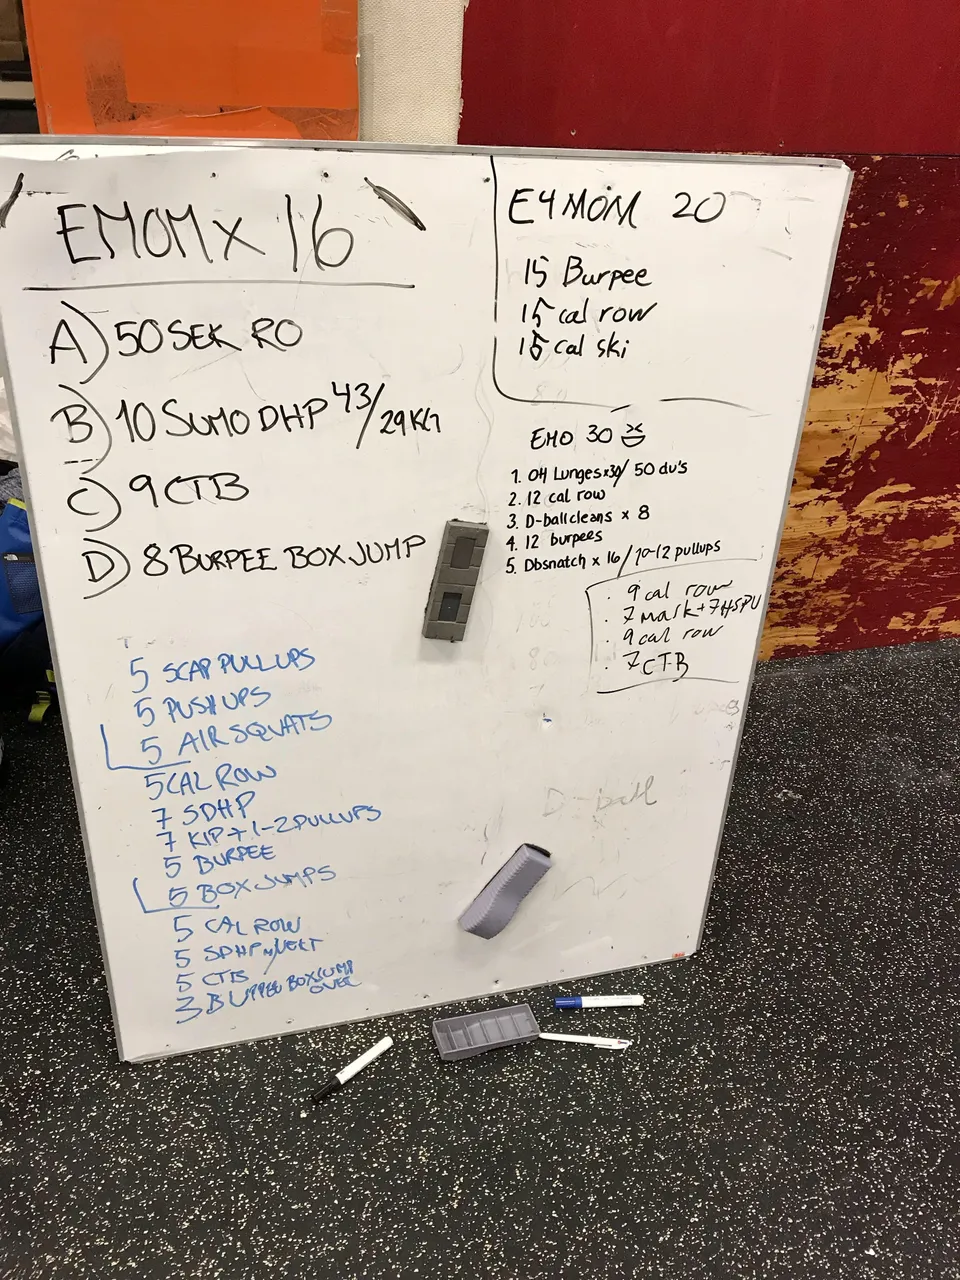 EMOM x 16
A) 50 SEK RO
B) 10 SUMO DHP 43/29KG
C) 9 CTB
D) 8 BURPEE BOX JUMP
5 SCAP PULLUPS
5 PUSH UPS
5 AIR SQUATS
5 CAL ROW
7 SDHP
7 KIP + 1-2 PULLUPS
5 BURPEE
5 BOX JUMPS
5 CAL ROW
5 SDHP
5 CTB
3 BURPEE BOX JUMP
OVER
E4MOM 20
15 Burpee
15 cal row
15 Cal ski
EMO 30
1. OH Lunges x30/ 50 du's
2. 12 cal row
3. D-ballcleans x 8
4. 12 burpees
5. Dbsnatch x 16/10-12 pullups
· 9 cal row
· 7 mark+7HSPU
· 9 cal row
· 7 CTB
D-ball